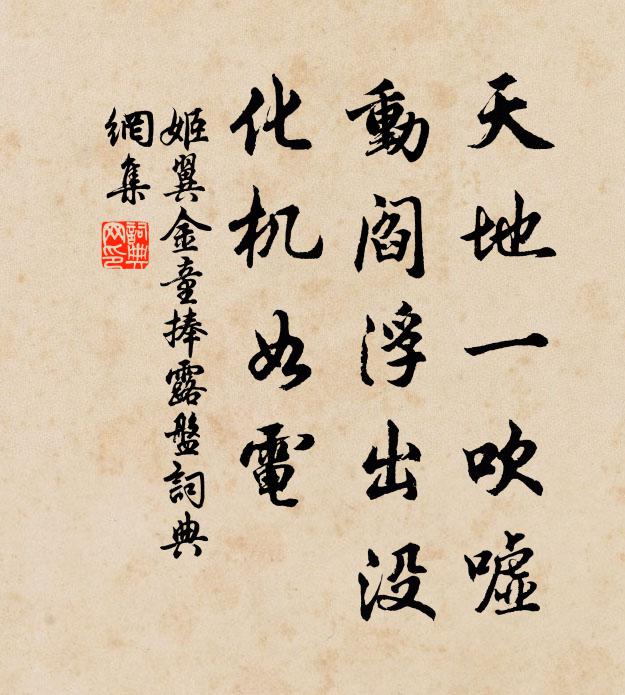 天地一吹嘘
動阎浮出没
化机如電
姬翼金童捧露盤詞典
網集
詞典网印